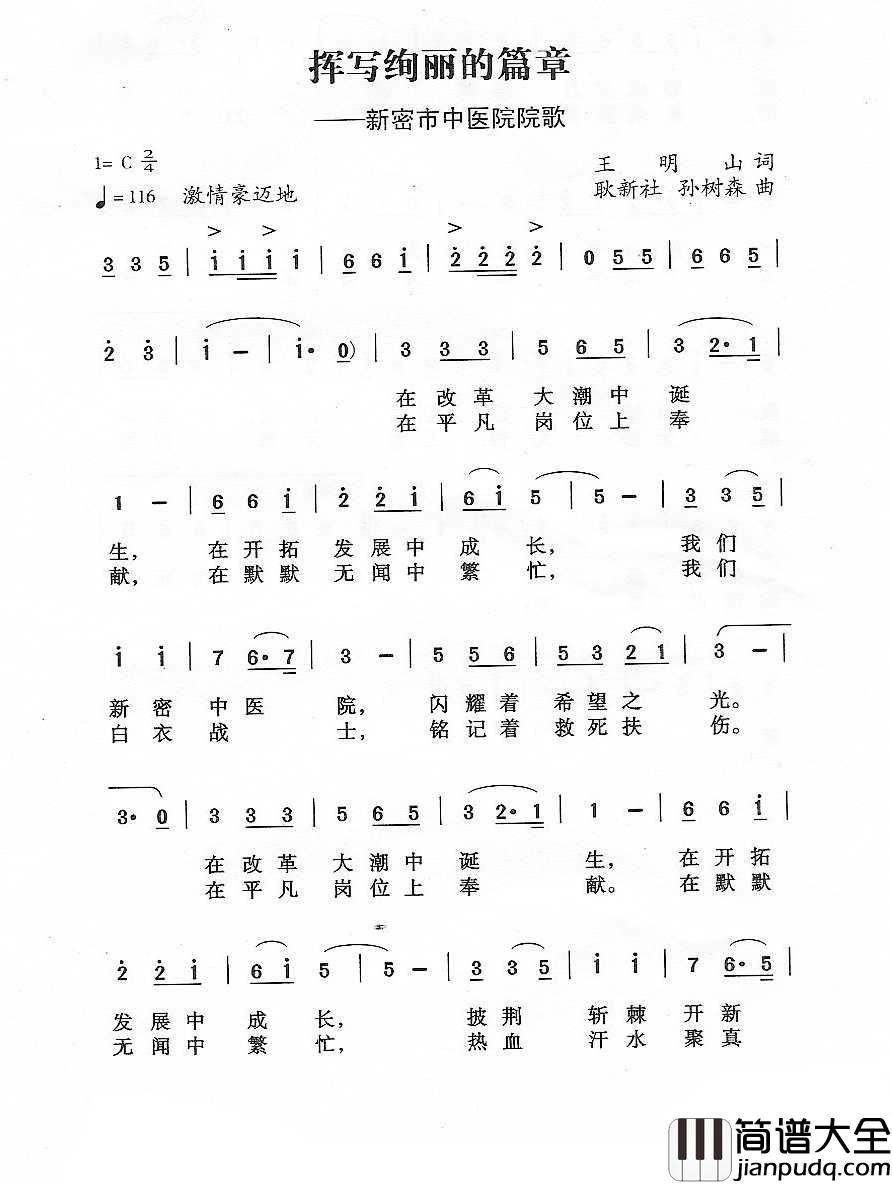 挥写绚丽的篇章
——新密市中医院院歌
1= C 2/4
王 明 山 词
♩=116 激情豪迈地
耿新社 孙树森 曲
3 3 5 | i i i i | 6 6 i | 2 2 2 2 | 0 5 5 | 6 6 5 |
2 3 | i – | i· 0) | 3 3 3 | 5 6 5 | 3 2· 1 |
在 改 革 大 潮 中 诞
在 平 凡 岗 位 上 奉
1 – | 6 6 i | 2 2 i | 6 i 5 | 5 – | 3 3 5 |
生, 在 开 拓 发 展 中 成 长, 我 们
献, 在 默 默 无 闻 中 繁 忙, 我 们
i i | 7 6· 7 | 3 – | 5 5 6 | 5 3 2 1 | 3 – |
新 密 中 医 院, 闪 耀 着 希 望 之 光。
白 衣 战 士, 铭 记 着 救 死 扶 伤。
3· 0 | 3 3 3 | 5 6 5 | 3 2· 1 | 1 – | 6 6 i |
在 改 革 大 潮 中 诞 生, 在 开 拓
在 平 凡 岗 位 上 奉 献。 在 默 默
2 2 i | 6 i 5 | 5 – | 3 3 5 | i i | 7 6· 5 |
发 展 中 成 长, 披 荆 斩 棘 开 新
无 闻 中 繁 忙, 热 血 汗 水 聚 真
简谱大全
jianpudq.com